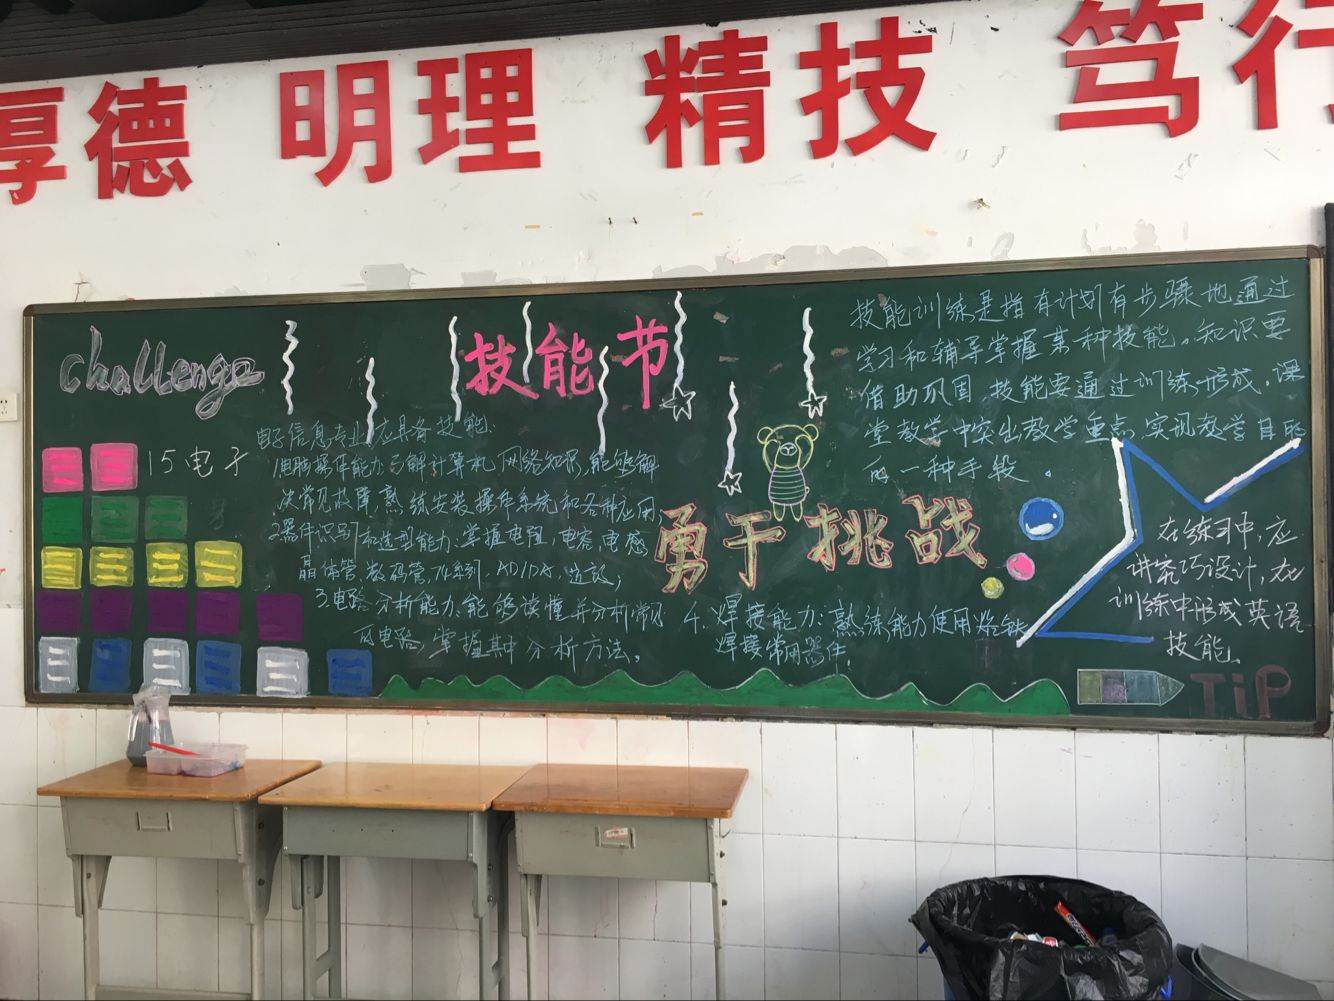 厚德 明理 精技 笃行
challenge
技能节
15电子
电子信息专业应具备技能:
1.电脑操作能力:了解计算机网络知识,能够解
决常见故障,熟练安装操作系统和各种应用,
2.器件识别和选型能力:掌握电阻,电容,电感
晶体管,数码管,74系列,AD/DA,
3.电路分析能力:能够读懂并分析常见
的电路,掌握其中分析方法。
勇于挑战
4.焊接能力:熟练能力使用烙铁
焊接常用器件,
技能训练是指有计划有步骤地通过
学习和辅导掌握某种技能。知识要
借助巩固,技能要通过训练形成,课
堂教学中突出教学重点,实现教学目的
的一种手段。
在练习中,应
讲究巧设计,在
训练中形成英语
技能。
TiP